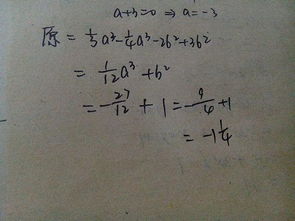 a+3=0 ⇒ a=-3
原 = 1/3a³-1/4a³-2b²+3b²
= 1/12a³+b²
= -27/12+1=-9/4+1
= -1 1/4